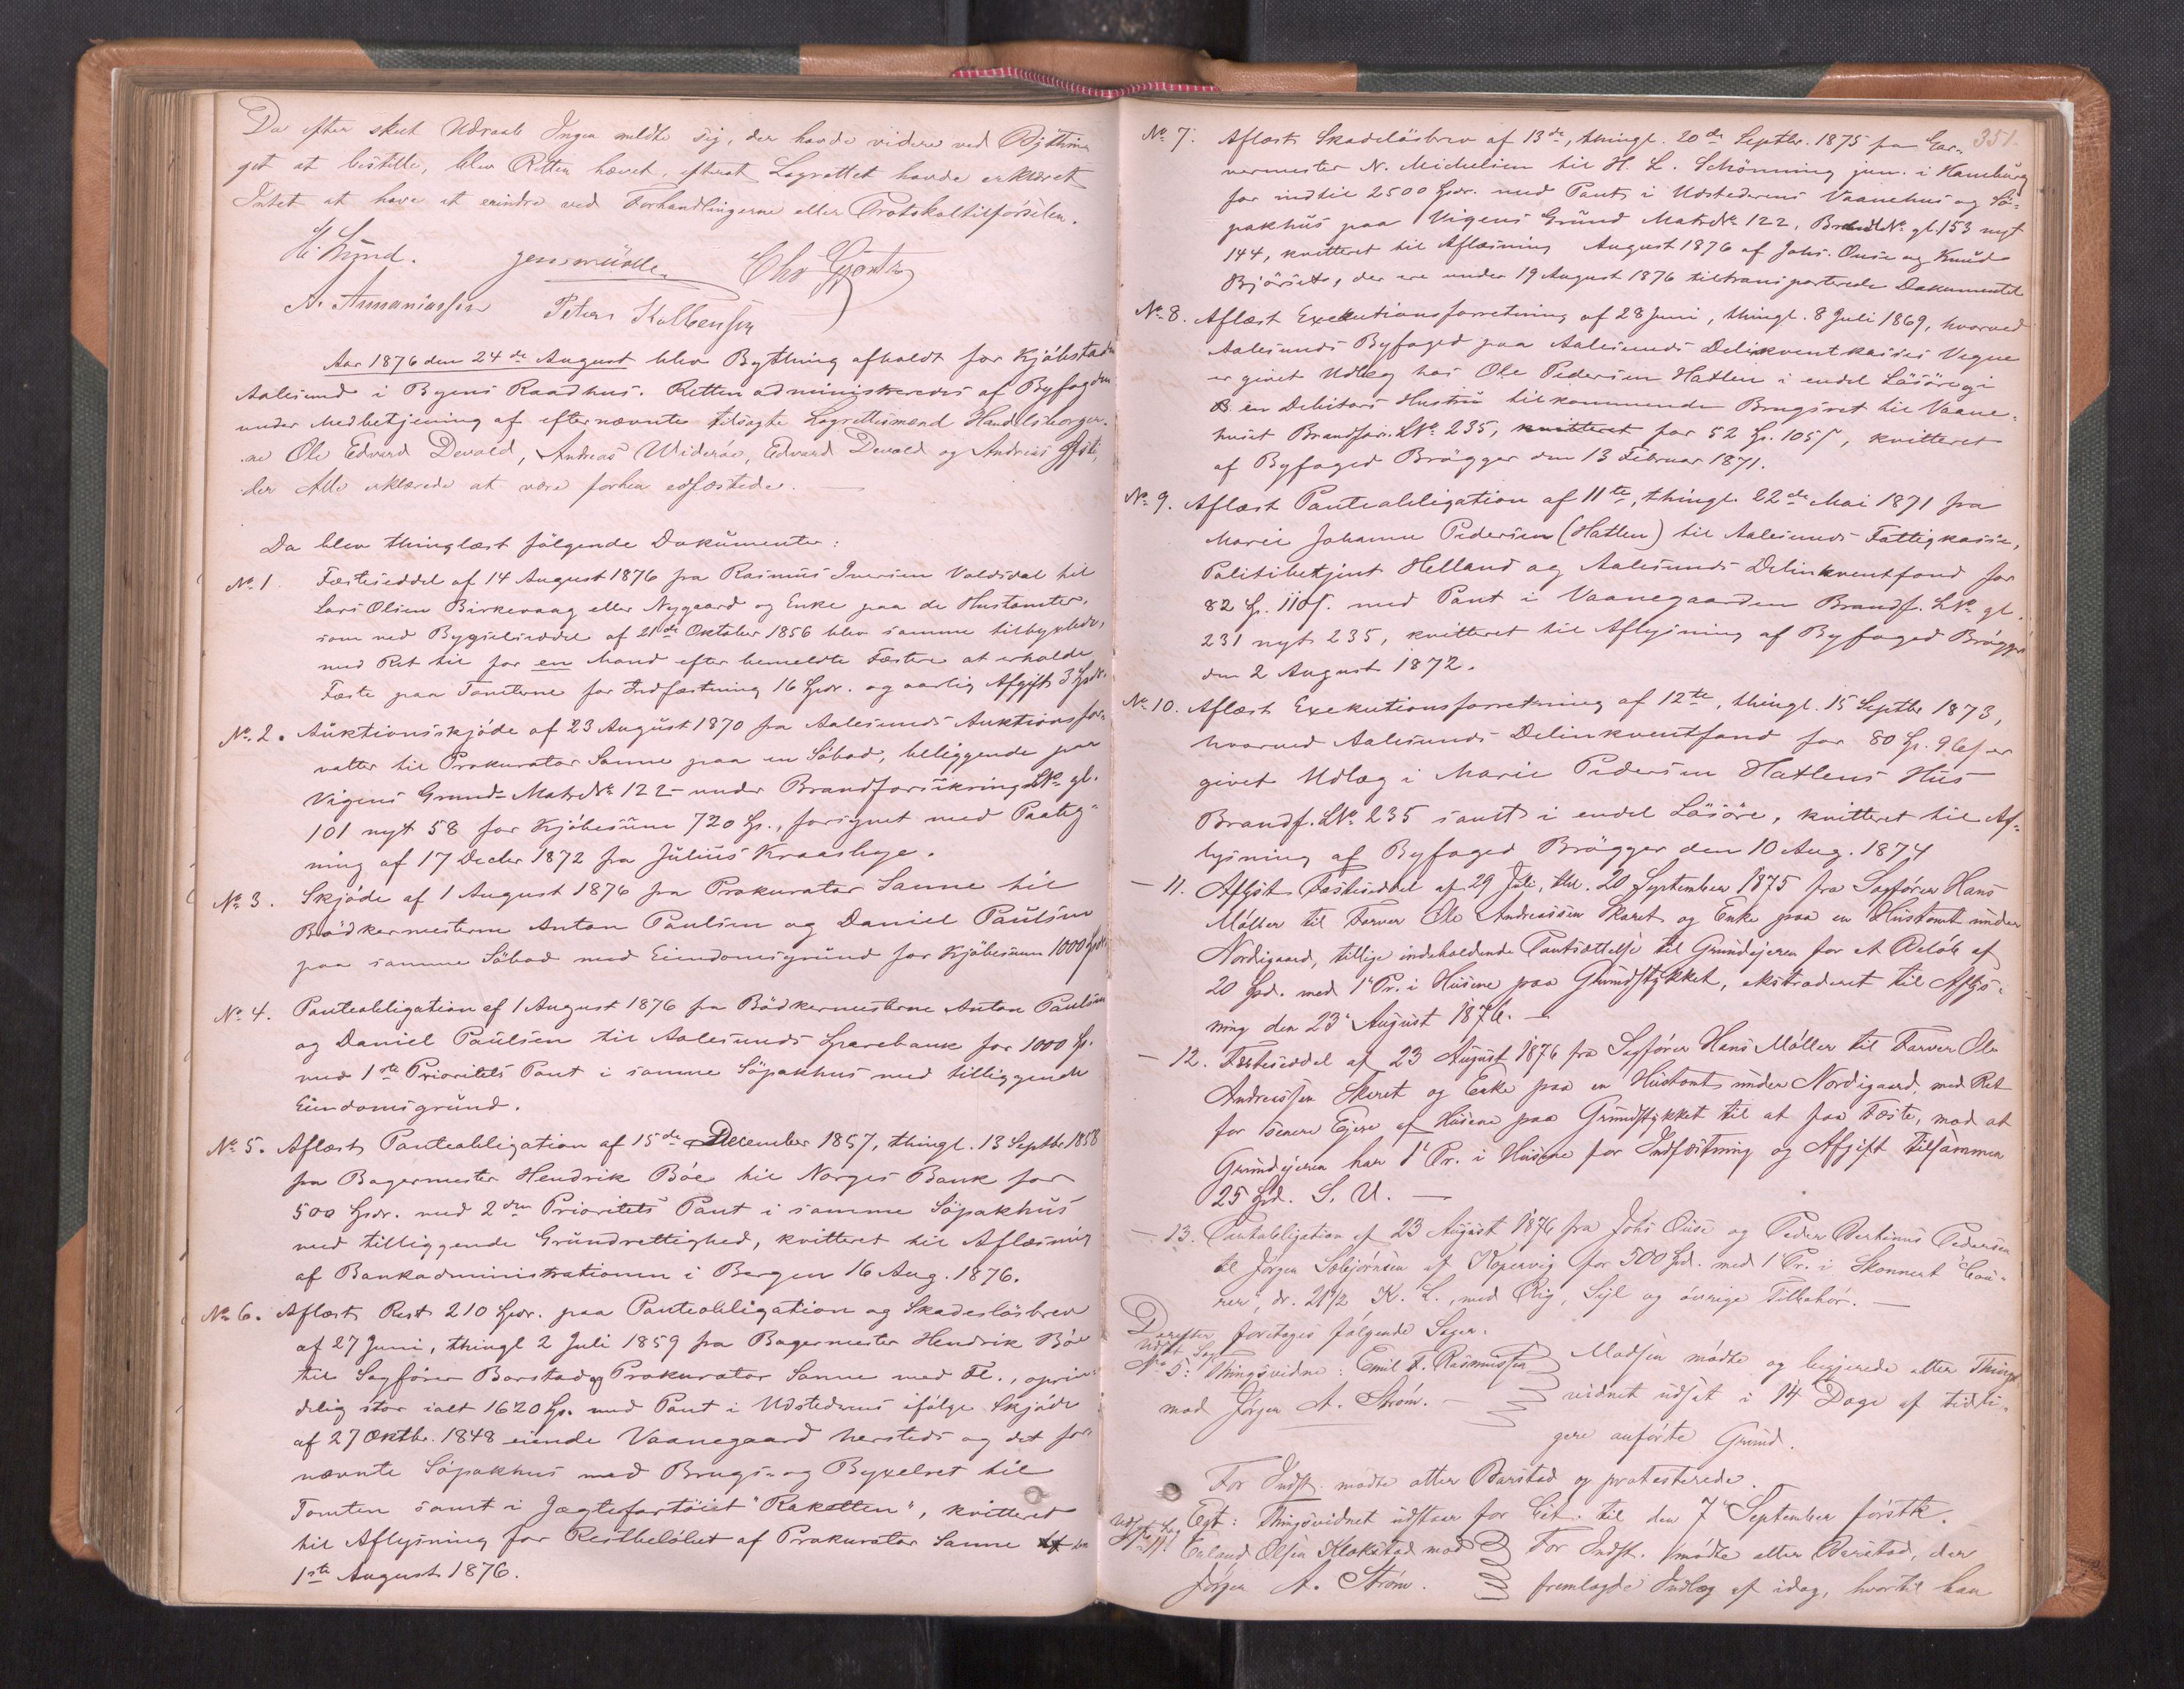 Da efter skeet Udraab Ingen meldte sig, der havde videre ved Bythin-
get at bestille, blev Retten hævet, efterat Lagrettet havde erklæret
Intet at have at erindre ved Forhandlingerne eller Protokoltilførselen.
H. Lund. Jens Møller Chr
A. Ammaniassen Peter Kolbensen
Aar 1876 den 24de August blev Bything afholdt for Kjöbstaden
Aalesund i Byens Raadhus. Retten administreredes af Byfogden
under Medbetjening af efternævnte tilsagte Lagrettesmænd Handelsborger-
ne Ole Edvard Devold, Andreas Widerøe, Edvard Devold og Andreas
der Alle erklærede at være forhen edfæstede.
Da blev thinglæst følgende Dokumenter:
No 1. Fæsteseddel af 14 August 1876 fra Rasmus Iversen Valdsdal til
Lars Olsen Birkevaag eller Nygaard og Enke paa de Hustomter,
som ved Bygselseddel af 21de Oktober 1856 blev samme tilbyxlede,
med Ret til for en Mand efter bemeldte Fæstere at erholde
Fæste paa Tomterne for Indfæstning 16 Spdr. og aarlig Afgift 3 Spdr.
No. 2. Auktionsskjøde af 23 August 1870 fra Aalesunds Auktionsfor-
valter til Prokurator Sanne paa en Söbod, beliggende paa
Vigens Grund - Matr. No 122 - under Brandforsikrings LNo gl.
101 nyt 58 for Kjöbesum 720 Sp., forsynet med Paateg-
ning af 17 Decbr 1872 fra Julius Kraashye.
No 3. Skjøde af 1 August 1876 fra Prokurator Sanne til
Bødkermesterne Anton Paulsen og Daniel Paulsen
paa samme Söbod med Eiendomsgrund for Kjöbesum 1000 Spdr.
No. 4. Panteobligation af 1 August 1876 fra Bödkermesterne Anton Paulsen
og Daniel Paulsen til Aalesunds Sparebank for 1000 Sp.
med 1ste Prioritets Pant i samme Söpakhus med tilliggende
Eiendomsgrund.
No 5. Aflæst Panteobligation af 15de December 1857, thingl. 13 Septbr 1858
fra Bagermester Hendrik Böe til Norges Bank for
500 Spdr. med 2den Prioritets Pant i samme Söpakhus
med tilliggende Grundrettighed, kvitteret til Aflæsning
af Bankadministrationen i Bergen 16 Aug. 1876.
No 6. Aflæst Rest 210 Spdr. paa Panteobligation og Skadeslösbrev
af 27 Juni, thingl 2 Juli 1859 fra Bagermester Hendrik Böe
til Sagförer Barstad og Prokurator Sanne med Fl., oprin-
delig stor ialt 1620 Sp. med Pant i Udstederens ifölge Skjöde
af 27 Oktbr. 1848 eiende Vaanegaard hersteds og det for-
nævnte Söpakhus med Brugs- og Byxelret til
Tomten samt i Jægtefartöiet "Raketten", kvitteret
til Aflysning for Restbelöbet af Prokurator Sanne den
1ste August 1876.
351.
No 7. Aflæst Skadeslösbrev af 13de, thingl. 20de Septbr. 1875 fra Gar-
vermester N. Michelsen til H. L. Schönning jun. i Hamburg
for indtil 2500 Spdr. med Pant i Udstederens Vaanehus og Sö-
pakhus paa Vigens Grund Matr. No 122, Brandf. No. gl. 153 nyt
144, kvitteret til Aflæsning August 1876 af Johs. Ouse og Knud
Björset, der ere under 19 August 1876 tiltransporterede Dokumentet
No. 8. Aflæst Exekutionsforretning af 28 Juni, thingl. 8 Juli 1869, hvorved
Aalesunds Byfoged paa Aalesunds Delinkventkasses Vegne
er givet Udlæg hos Ole Pedersen Hatlen i endel Lösöre og i
en Debitors Hustru tilkommende Brugsret til Vaane-
huset Brandfors. LNo. 235, kvitteret for 52 Sp. 105 s, kvitteret
af Byfoged Brögger den 13 Februar 1871.
No. 9. Aflæst Panteobligation af 11te, thingl. 22de Mai 1871 fra
Marie Johanne Pedersen (Hatlen) til Aalesunds Fattigkasse,
Politibetjent Helland og Aalesunds Delinkventfond for
82 Sp. 110 s. med Pant i Vaanegaarden Brandf. LNo. gl.
231 nyt 235, kvitteret til Aflysning af Byfoged Brögger
den 2 August 1872.
No. 10. Aflæst Exekutionsforretning af 12te, thingl. 15 Septbr 1873,
hvorved Aalesunds Delinkventfond for 80 Sp. 96 s er
givet Udlæg i Marie Pedersen Hatlens Hus
Brandf. LNo. 235 samt i endel Lösöre, kvitteret til Af-
lysning af Byfoged Brögger den 10 Aug. 1874
- 11. Aflyst Fæsteseddel af 29 Juli, thl. 20 September 1875 fra Sagfører Hans
Møller til Farver Ole Andreassen Skaret og Enke paa en Hustomt under
Nordigaard, tillige indeholdende Pantsættelse til Grundejeren for et Beløb af
20 Spd. med 1' Pr. i Husene paa Grundstykket, ekstraderet til Aflys-
ning den 23' August 1876. -
- 12. Fæsteseddel af 23 August 1876 fra Sagfører Hans Møller til Farver Ole
Andreassen Skaret og Enke paa en Hustomt under Nordigaard, med Ret
for senere Ejere af Husene paa Grundstykket til at faa Fæste, mod at
Grundejeren har 1' Pr. i Husene for Indfæstning og Afgift tilsammen
25 Spd. S. U. -
- 13. Pantobligation af 23 August 1876 fra Johs Ouse og Peder Bertinus Pedersen
til Jørgen Sæbjørnsen af Kopervig for 500 Spd. med 1' Pr. i Skonnert "Cou-
rier", dr. 21 1/2 K. L., med Rig, Sejl og øvrige Tilbehør. -
Derefter foretages følgende Sager.
Udsat Sag
No 5: Thingsvidne: Emil F. Rasmussen
mod Jørgen A. Strøm. -
Madsen mødte og begjerede atter Things-
vidnet udsat i 14 Dage af tidli-
gere anførte Grund.
For Indst. mødte atter Barstad og protesterede.
Egt: Thingsvidnet udstaar for Cit. til den 7' September førstk.
Udsat Sag
Erland Olsen Klokstad mod
Jørgen A. Strøm.
For Indst. mødte atter Barstad, der
fremlagde Indlæg af idag, hvortil han